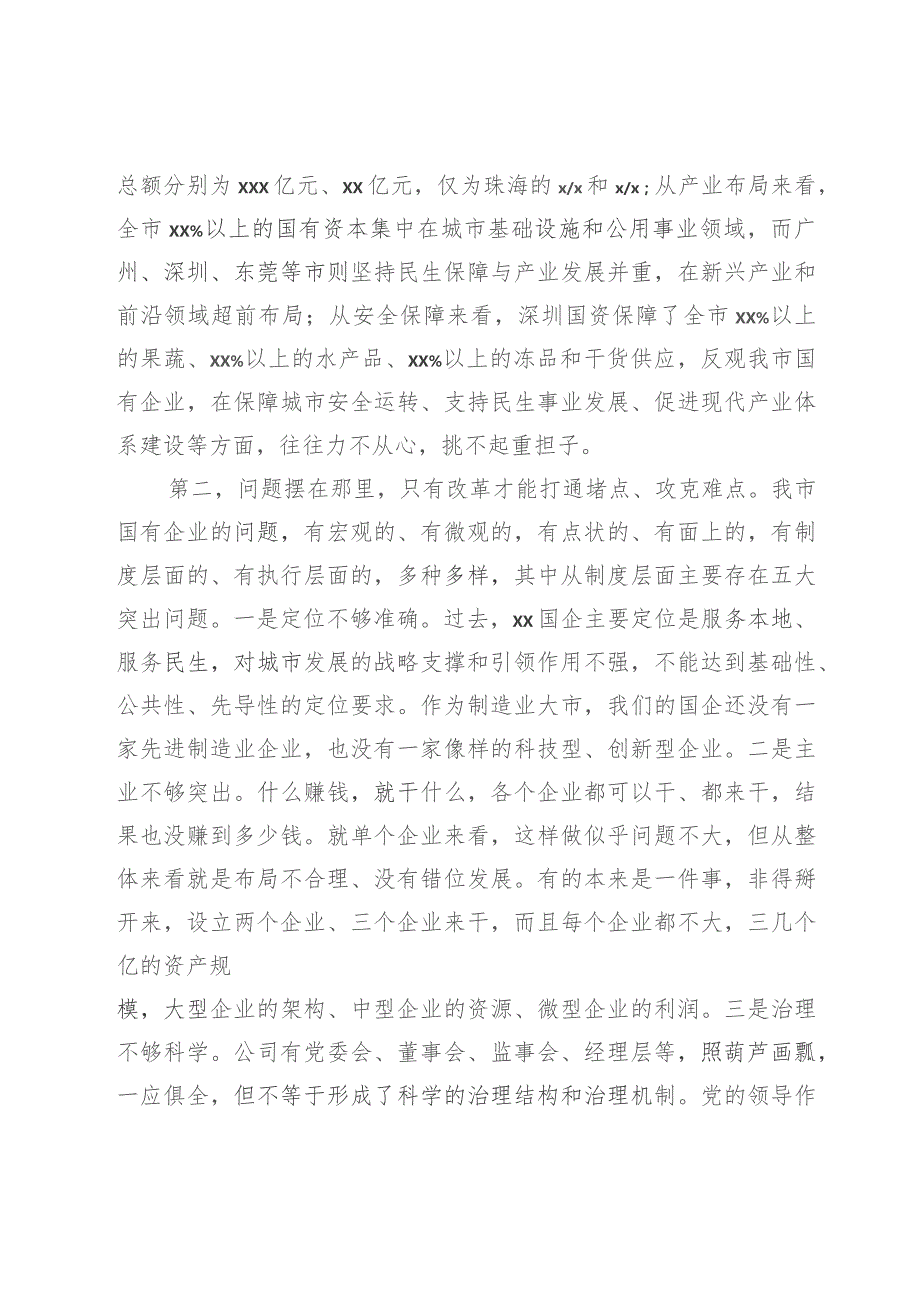 总额分别为 xxx 亿元、xx 亿元，仅为珠海的 x/x 和 x/x；从产业布局来看，
全市 xx%以上的国有资本集中在城市基础设施和公用事业领域，而广
州、深圳、东莞等市则坚持民生保障与产业发展并重，在新兴产业和
前沿领域超前布局；从安全保障来看，深圳国资保障了全市 xx%以上
的果蔬、xx%以上的水产品、xx%以上的冻品和干货供应，反观我市国
有企业，在保障城市安全运转、支持民生事业发展、促进现代产业体
系建设等方面，往往力不从心，挑不起重担子。
第二，问题摆在那里，只有改革才能打通堵点、攻克难点。我市
国有企业的问题，有宏观的、有微观的，有点状的、有面上的，有制
度层面的、有执行层面的，多种多样，其中从制度层面主要存在五大
突出问题。一是定位不够准确。过去，xx 国企主要定位是服务本地、
服务民生，对城市发展的战略支撑和引领作用不强，不能达到基础性、
公共性、先导性的定位要求。作为制造业大市，我们的国企还没有一
家先进制造业企业，也没有一家像样的科技型、创新型企业。二是主
业不够突出。什么赚钱，就干什么，各个企业都可以干、都来干，结
果也没赚到多少钱。就单个企业来看，这样做似乎问题不大，但从整
体来看就是布局不合理、没有错位发展。有的本来是一件事，非得掰
开来，设立两个企业、三个企业来干，而且每个企业都不大，三几个
亿的资产规
模，大型企业的架构、中型企业的资源、微型企业的利润。三是治理
不够科学。公司有党委会、董事会、监事会、经理层等，照葫芦画瓢，
一应俱全，但不等于形成了科学的治理结构和治理机制。党的领导作